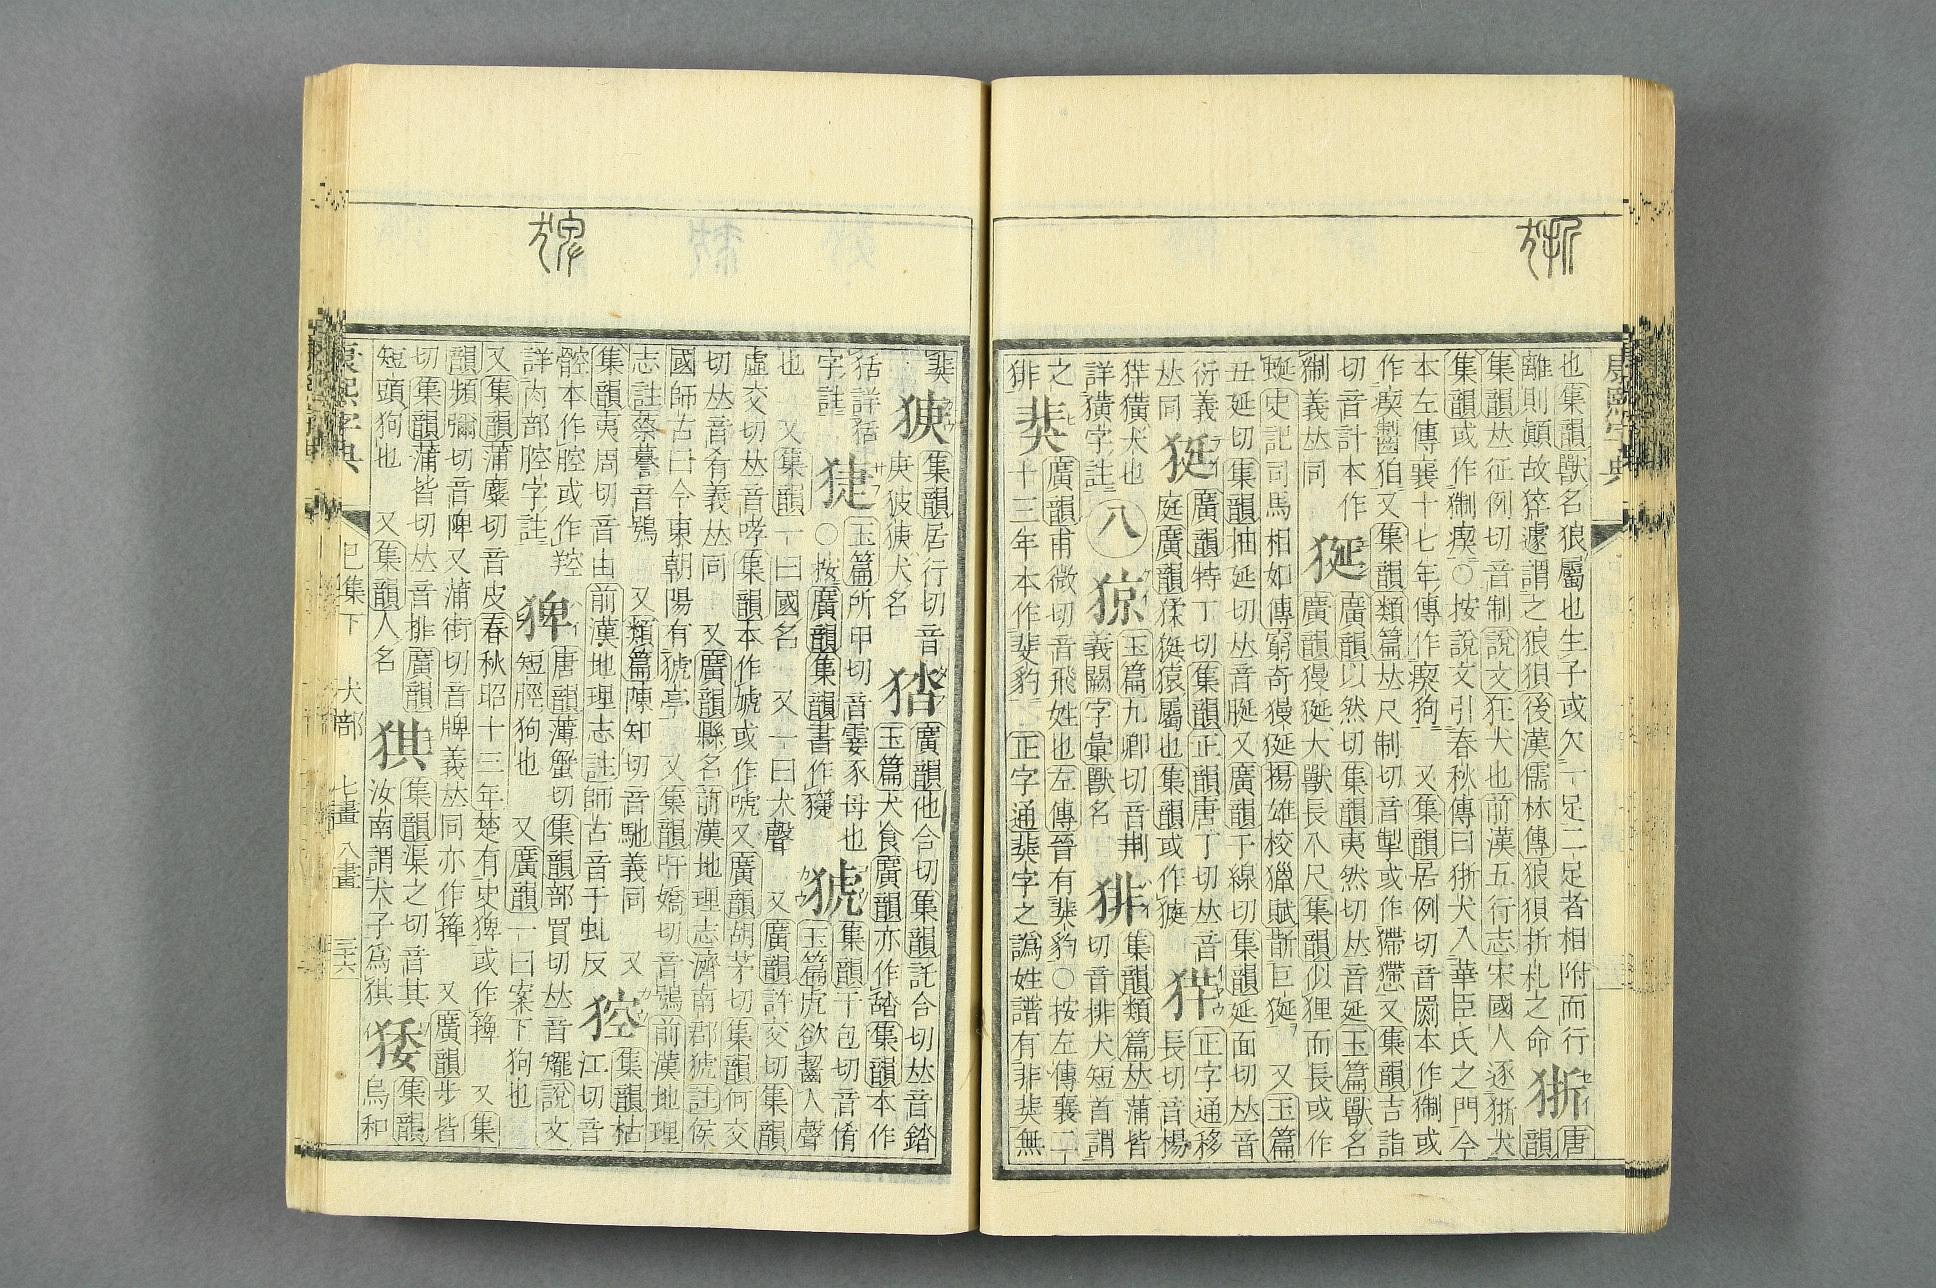 也集韻獸名狼屬也生子或欠一足二足者相附而行
離則顚故猝遽謂之狼狽後漢儒林傳狼狽折札之命
狾
唐
韻
集韻𠀤征例切音制說文狂犬也前漢五行志宋國人逐狾犬
集韻或作猘○按說文引春秋傳曰狾犬入華臣氏之門今
本左傳襄十七年傳作狗 又集韻居例切音罽本作猘或
作又集韻類篇𠀤尺制切音掣或作懘又集韻吉詣
切音計本作
猘義𠀤同
狿
廣韻以然切集韻夷然切𠀤音延玉篇獸名
廣韻獌狿大獸長八尺集韻似狸而長或作
蜒史記司馬相如傳窮奇獌狿揚雄校獵賦斮巨狿 又玉篇
丑延切集韻抽延切𠀤音脠又廣韻予線切集韻延面切𠀤音
衍義
𠀤同
㹶
廣韻特丁切集韻正韻唐丁切𠀤音
庭廣韻猱㹶猿屬也集韻或作
正字通移
長切音楊
獚犬也
詳獚字註
八
猄
玉篇九卿切音荆
義闕字彙獸名
猅
集韻類篇𠀤蒲皆
切音排犬短首謂
之
猅
猆
廣韻甫微切音飛姓也左傳晉有猆豹○按左傳襄二
十三年本作斐豹 正字通猆字之譌姓譜有非猆無
康熙字典
猆
集韻居行切音
庚犬名
廣韻他合切集韻託合切𠀤音錔
玉篇犬食廣韻亦作䑜集韻本作
狧詳狧
字註
玉篇所甲切音霎豕母也
○按廣韻集韻書作
猇
集韻于包切音倄
玉篇虎欲齧人聲
也 又集韻一曰國名 又一曰犬聲 又廣韻許交切集韻
虛交切𠀤音哮集韻本作虓或作唬又廣韻胡茅切集韻何交
切𠀤音肴義𠀤同 又廣韻縣名前漢地理志濟南郡猇註侯
國師古曰今東朝陽有猇亭 又集韻吁嬌切音鴞前漢地理
志註蔡謩音鴞 又類篇陳知切音馳義同 又
集韻夷周切音由前漢地理志註師古音于虬反
𤟖
集韻枯
江切音
腔本作腔或作羫
詳肉部腔字註
猈
唐韻薄蟹切集韻部買切𠀤音罷說文
短脛狗也 又廣韻一曰案下狗也
又集韻蒲麋切音皮春秋昭十三年楚有史猈或作 又集
韻頻彌切音陴又蒲街切音牌義𠀤同亦作 又廣韻步皆
切集韻蒲皆切𠀤音排廣韻
短頭狗也 又集韻人名
猉
集韻渠之切音其
汝南謂犬子爲猉
㹻
集韻
烏和
康熙字典
巳集下 犬部 七畫 八畫 三六